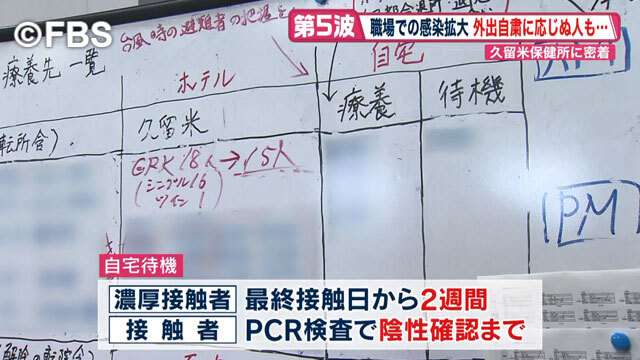 ©FBS
第5波
職場での感染拡大 外出自粛に応じぬ人も…
久留米保健所に密着
台風時の避難者の把握を
療養先一覧
ホテル
自宅
久留米
療養
待機
GRK 18人→15人
(シングル16
ツイン1)
PM
自宅待機
濃厚接触者 最終接触日から2週間
接触者 PCR検査で陰性確認まで